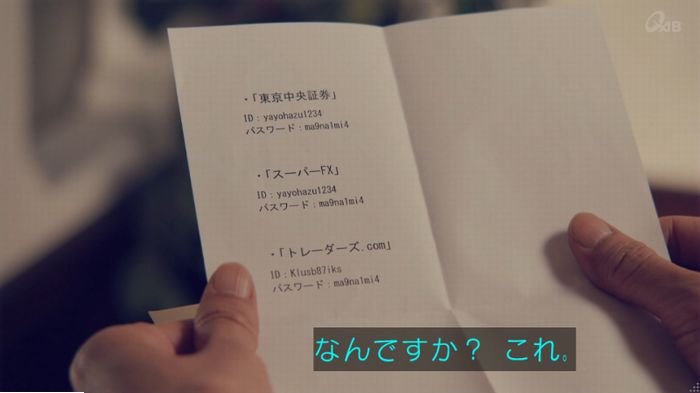 ・「東京中央証券」
ID：yayohazu1234
パスワード：ma9na1mi4
・「スーパーFX」
ID：yayohazu1234
パスワード：ma9na1mi4
・「トレーダーズ.com」
ID：Klusb87iks
パスワード：ma9na1mi4
なんですか？ これ。